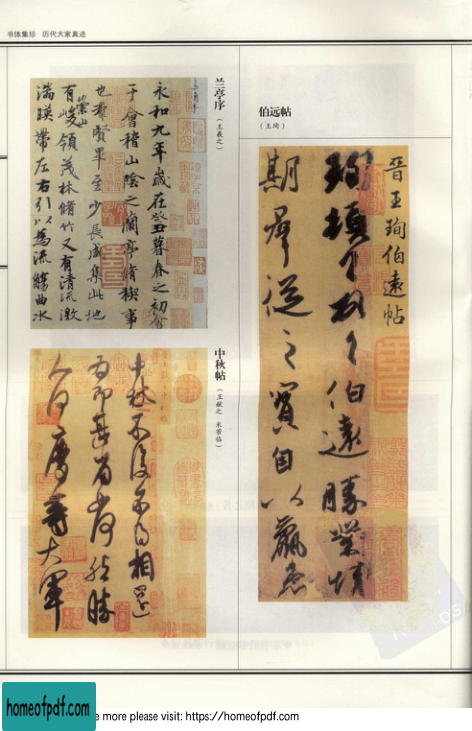 书体集珍 历代大家真迹
兰亭序
(王羲之)
永和九年歲在癸丑暮春之初會
于會稽山陰之蘭亭脩稧事
也羣賢畢至少長咸集此地
有崇山峻領茂林脩竹又有清流激
湍暎帶左右引以為流觴曲水
中秋帖
(王献之 米芾临)
中秋不復不得相還
為即甚省如何然勝
人何慶等大軍
伯远帖
(王珣)
晋王珣伯遠帖
珣頓首頓首伯遠勝業情
期羣從之寶自以羸患
homeofpdf.com
e more please visit: https://homeofpdf.com